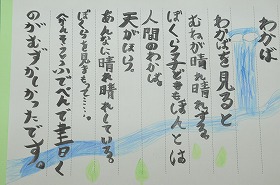 わかは
わかばを見ると
むねが晴れ晴れする。
ぼくら子どももほんとは
人間のわかば。
天がほら。
あんなに晴れ晴れしている。
ぼくらを見まもって……。
(かんそう)ふでぺんで書く
のがむずかしかったです。